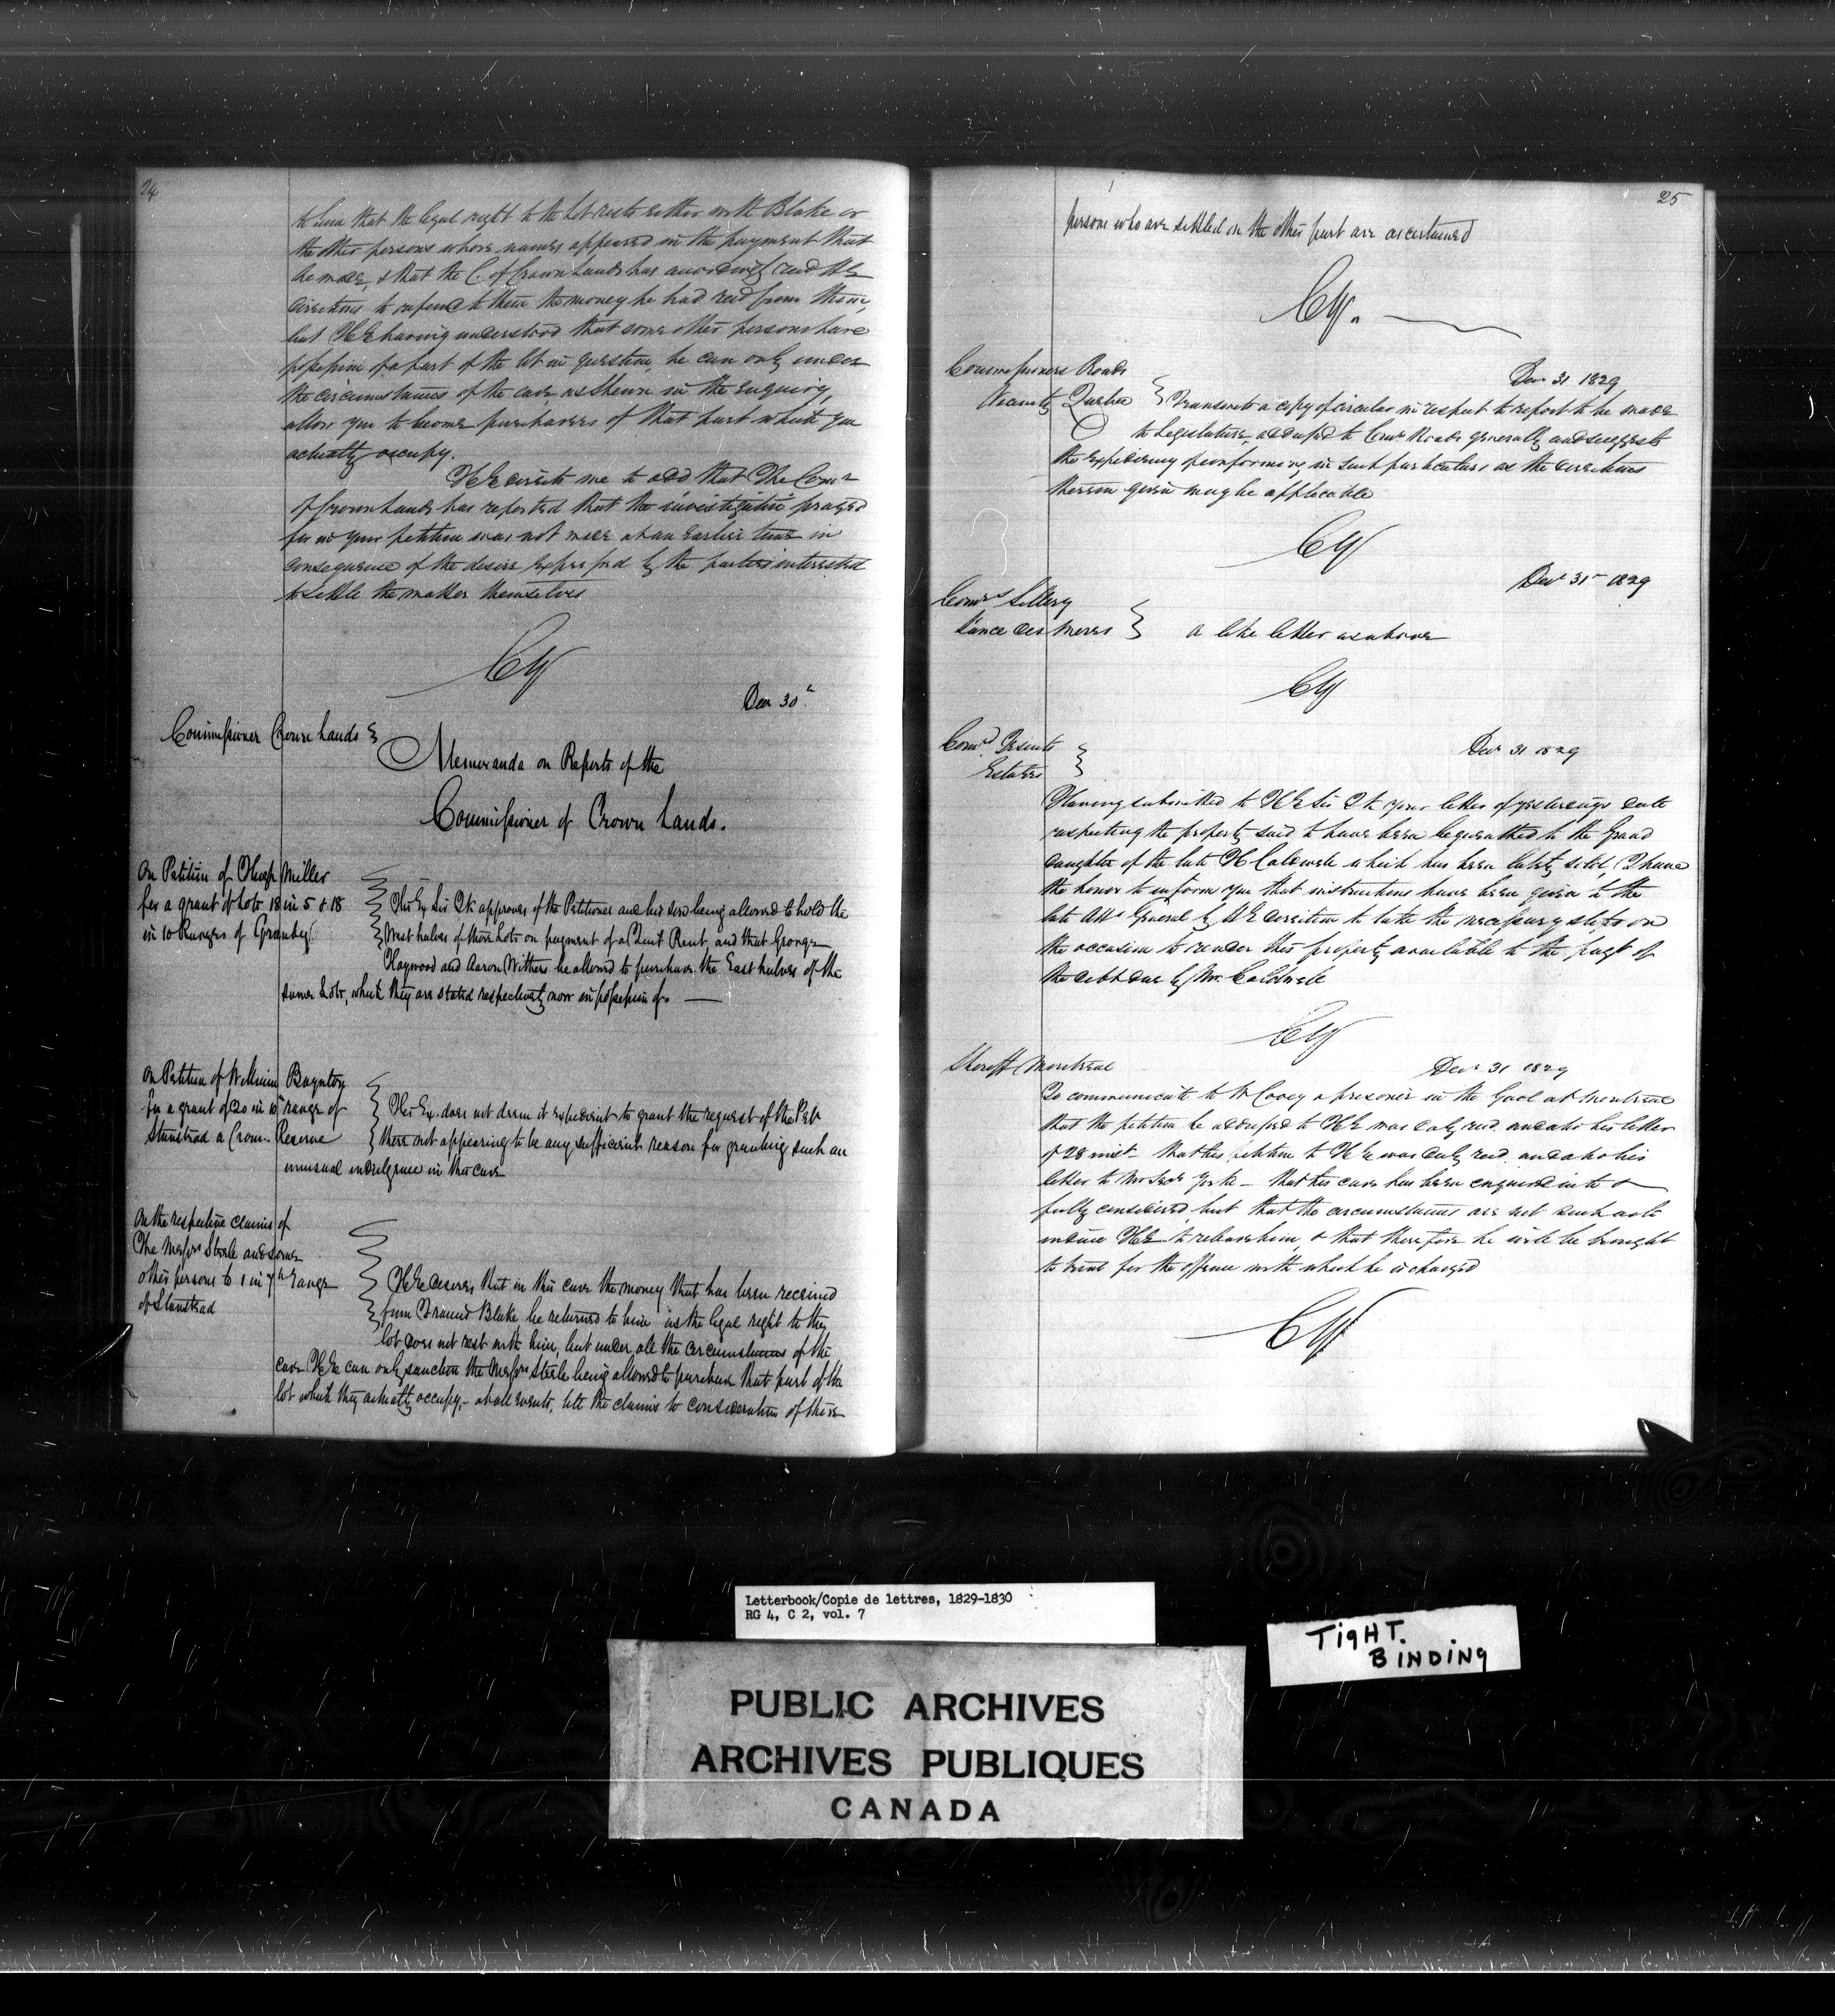 24
to him that the legal right to the Lot rests either with Blake or
the other persons whose names appeared in the payment that
he made, & that the C. of Crown Lands has accordingly recd HE
directions to refund to them the money he had recd from them,
but HE having understood that some other persons have
possession of a part of the lot in question, he can only under
the circumstances of the case as shewn in the enquiry,
allow you to become purchasers of that part which you
actually occupy.
HE directs me to add that The Comr
of Crown Lands has reported that the investigation prayed
for in your petition was not made at an earlier time in
consequence of the desire expressed by the parties interested
to settle the matter themselves
CY
Decr 30th
Commissioner Crown Lands
Memoranda on Reports of the
Commissioner of Crown Lands.
On Petition of Miller
for a grant of Lots 18 in 5 & 18
in 10 Ranges of Granby
His Ex Sir Jk approves of the Petitioner and his son being allowed to hold the
West halves of these Lots on payment of a Quit Rent, and that George
Haywood and Aaron Withers be allowed to purchase the East halves of the
same Lots, which they are stated respectively now in possession of. —
On Petition of William Baynton
for a grant of 20 in 10th range of
Stanstead a Crown Reserve
His Ex. does not deem it expedient to grant the request of the Petr
there not appearing to be any sufficient reason for granting such an
unusual indulgence in this case
On the respective claims of
The Messrs Steele and some
other persons to 1 in 7th Range
of Stanstead
HE desires that in this case the money that has been received
from Francis Blake be returned to him as the legal right to the
lot does not rest with him, but under all the circumstances of the
case HE can only sanction the Messrs Steele being allowed to purchase that part of the
lot which they actually occupy, - at all events, till the claims to consideration of those
25
persons who are settled on the other part are ascertained
CY.
Commissioners Roads
Vicinity Quebec
Decr 31 1829
Transmits a copy of circular in respect to report to be made
to Legislature, addressed to Comrs Roads generally and suggests
the expediency of conforming in such particulars as the directions
therein given may be applicable
CY
Decr 31st 1829
Comrs Sillery
L'ance des Meres
a like letter as above
CY
Comrs Jesuits
Estates
Decr 31 1829
Having submitted to HE Sir Jk your letter of yesterdays date
respecting the property said to have been bequeathed to the Grand
daughter of the late H Caldwell which has been lately sold, I have
the honor to inform you that instructions have been given to the
late Atty General by HE direction to take the necessary steps on
the occasion to render this property available to the payt of
the debt due by Mr. Caldwell
CY
Sheriff Montreal
Decr 31 1829
To communicate to a prisoner in the Gaol at Montreal
that the petition he addressed to HE was duly recd. and also his letter
of 28 inst - that his petition to HE was duly recd. and also his
letter to Mr Secy Yorke - that his case has been enquired into &
fully considered, but that the circumstances are not such as to
induce HE to release him, & that therefore he will be brought
to trial for the offence with which he is charged
CY
Letterbook/Copie de lettres, 1829-1830
RG 4, C 2, vol. 7
TIGHT.
BINDING
PUBLIC ARCHIVES
ARCHIVES PUBLIQUES
CANADA